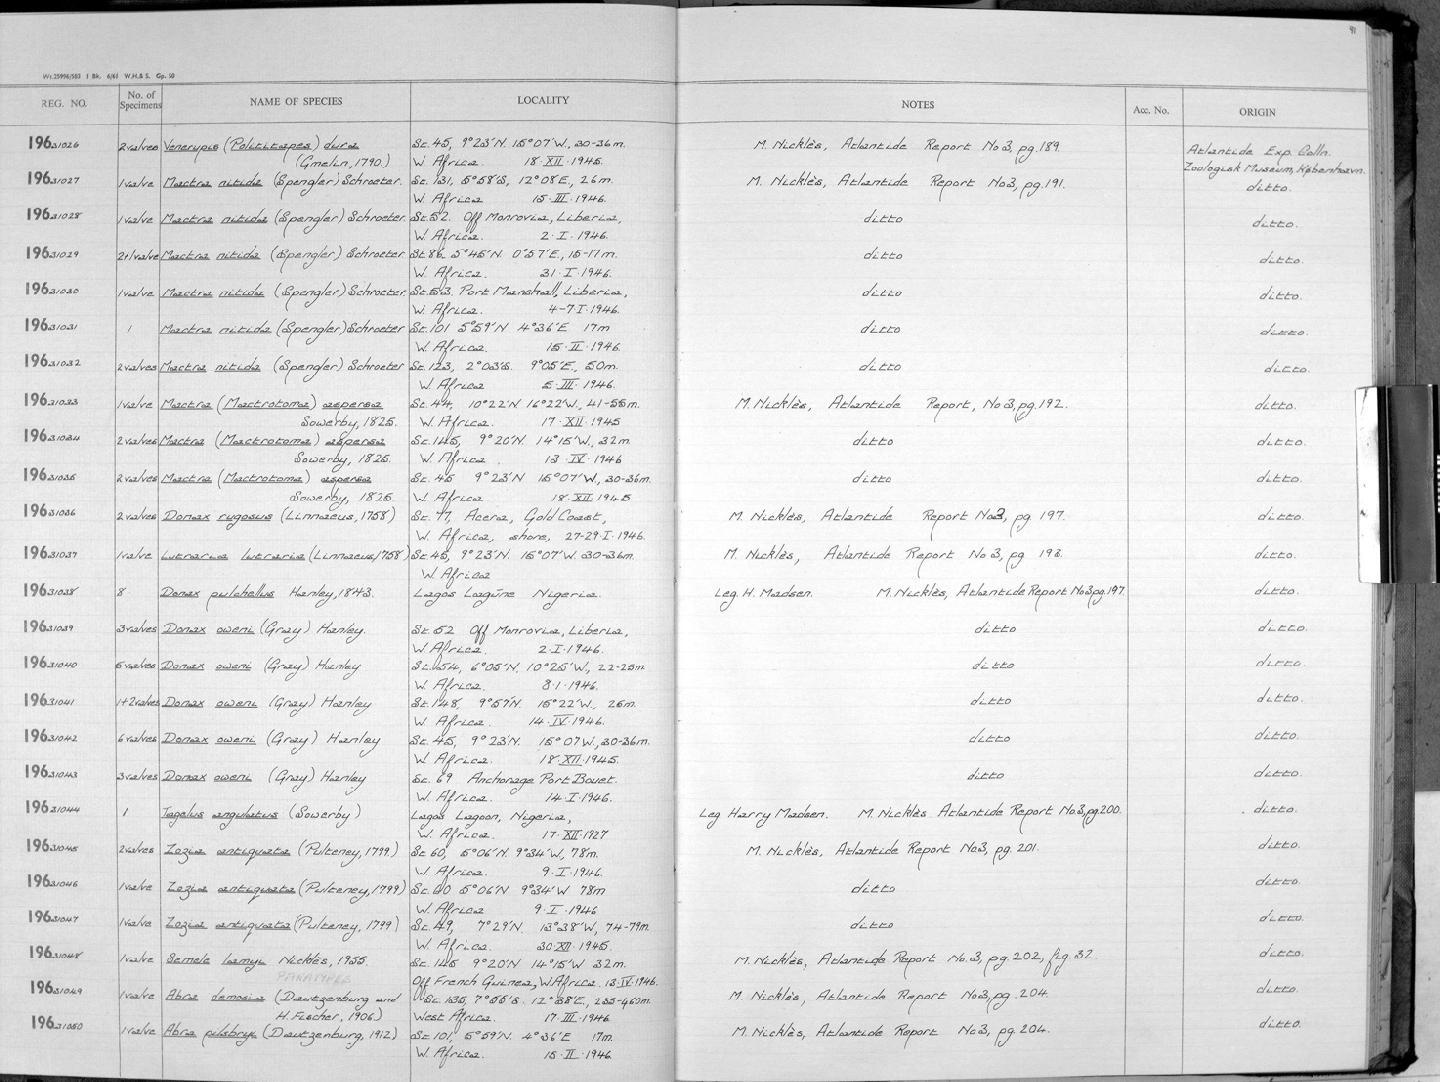 91
Wt.25996/503 1 Bk. 6/61 W.H.& S. Gp. 50
REG. NO. No. of Specimens NAME OF SPECIES LOCALITY NOTES Acc. No. ORIGIN
196 31026 2 valves Venerupis (Polititapes) dura St. 45, 9°23'N. 15°07'W., 30-36m. M. Nicklès, Atlantide Report No 3, pg. 189. Atlantide Exp. Colln.
(Gmelin, 1790.) W Africa 18·XII·1945. Zoologisk Museum, København.
196 31027 1 valve Mactra nitida (Spengler) Schroeter. St. 131, 5°58'S, 12°08'E., 26m. M. Nicklès, Atlantide Report No3, pg. 191. ditto.
W. Africa 15·III·1946.
196 31028 1 valve Mactra nitida (Spengler) Schroeter. St. 52. Off Monrovia, Liberia, ditto ditto.
W. Africa. 2·I·1946.
196 31029 2+1 valve Mactra nitida (Spengler) Schroeter. St 86 5°45'N. 0°57'E., 15-17m. ditto ditto.
W. Africa. 31·I·1946.
196 31030 1 valve Mactra nitida (Spengler) Schroeter. St. 53. Port Marshall, Liberia, ditto ditto.
W. Africa. 4-7·I·1946.
196 31031 1 Mactra nitida (Spengler) Schroeter St. 101 5°59'N 4°36'E 17m ditto ditto.
W. Africa. 15·II·1946.
196 31032 2 valves Mactra nitida (Spengler) Schroeter St. 123, 2°03'S. 9°05'E., 50m. ditto ditto.
W. Africa 5·III·1946.
196 31033 1 valve Mactra (Mactrotoma) aspersa St. 44, 10°22'N 16°22'W., 41-55m. M. Nicklès, Atlantide Report, No 3, pg. 192. ditto.
Sowerby, 1825. W. Africa. 17·XII·1945
196 31034 2 valves Mactra (Mactrotoma) aspersa St. 145, 9°20'N. 14°15'W., 32m. ditto ditto.
Sowerby, 1825. W. Africa 13·IV·1946
196 31035 2 valves Mactra (Mactrotoma) aspersa St. 45 9°23'N 15°07'W., 30-36m. ditto ditto.
Sowerby, 1825. W. Africa 18·XII·1945
196 31036 2 valves Donax rugosus (Linnaeus, 1758) St. 77, Accra, Gold Coast, M. Nicklès, Atlantide Report No3, pg. 197. ditto.
W. Africa, shore, 27-29·I·1946.
196 31037 1 valve Lutraria lutraria (Linnaeus, 1758) St. 45, 9°23'N. 15°07'W. 30-36m. M. Nicklès, Atlantide Report No 3, pg 193. ditto.
W. Africa
196 31038 8 Donax pulchellus Hanley, 1843. Lagos Lagune Nigeria. Leg. H. Madsen. M. Nicklès, Atlantide Report No3, pg. 197. ditto.
196 31039 3 valves Donax oweni (Gray) Hanley. St. 52 Off Monrovia, Liberia, ditto ditto.
W. Africa. 2·I·1946.
196 31040 5 valves Donax oweni (Gray) Hanley St. 54, 6°05'N. 10°25'W., 22-25m. ditto ditto.
W. Africa. 8·I·1946.
196 31041 1+2 valves Donax oweni (Gray) Hanley St. 148, 9°57'N. 15°22'W., 25m. ditto ditto.
W. Africa. 14·IV·1946.
196 31042 6 valves Donax oweni (Gray) Hanley St. 45, 9°23'N. 15°07'W., 30-36m. ditto ditto.
W. Africa. 18·XII·1945.
196 31043 3 valves Donax oweni (Gray) Hanley St. 69 Anchorage Port Bouet. ditto ditto.
W. Africa. 14·I·1946.
196 31044 1 Tagelus angulatus (Sowerby) Lagos Lagoon, Nigeria, Leg Harry Madsen. M. Nicklès Atlantide Report No.3, pg. 200. ditto.
W. Africa. 17·XII·1927
196 31045 2 valves Zozia antiquata (Pulteney, 1799.) St 60, 5°06'N. 9°34'W., 78m. M. Nicklès, Atlantide Report No 3, pg. 201. ditto.
W. Africa. 9·I·1946.
196 31046 1 valve Zozia antiquata (Pulteney, 1799) St. 60 5°06'N 9°34'W 78m ditto ditto.
W. Africa 9·I·1946
196 31047 1 valve Zozia antiquata (Pulteney, 1799) St. 49, 7°29'N. 13°38'W., 74-79m. ditto ditto.
W. Africa. 30·XII·1945.
196 31048 1 valve Semele lamyi Nicklès, 1955. St. 145 9°20'N 14°15'W 32m. M. Nicklès, Atlantide Report No. 3, pg. 202, fig. 37. ditto.
PARATYPES Off French Guinea, W. Africa. 13·IV·1946.
196 31049 1 valve Abra demosia (Dautzenburg and St. 135, 7°55'S. 12°38'E., 235-460m. M. Nicklès, Atlantide Report No 3, pg. 204. ditto.
H. Fischer, 1906.) West Africa. 17·III·1946
196 31050 1 valve Abra pilsbryi (Dautzenburg, 1912) St. 101, 5°59'N. 4°36'E 17m. M. Nicklès, Atlantide Report No 3, pg. 204. ditto.
W. Africa. 15·II·1946.